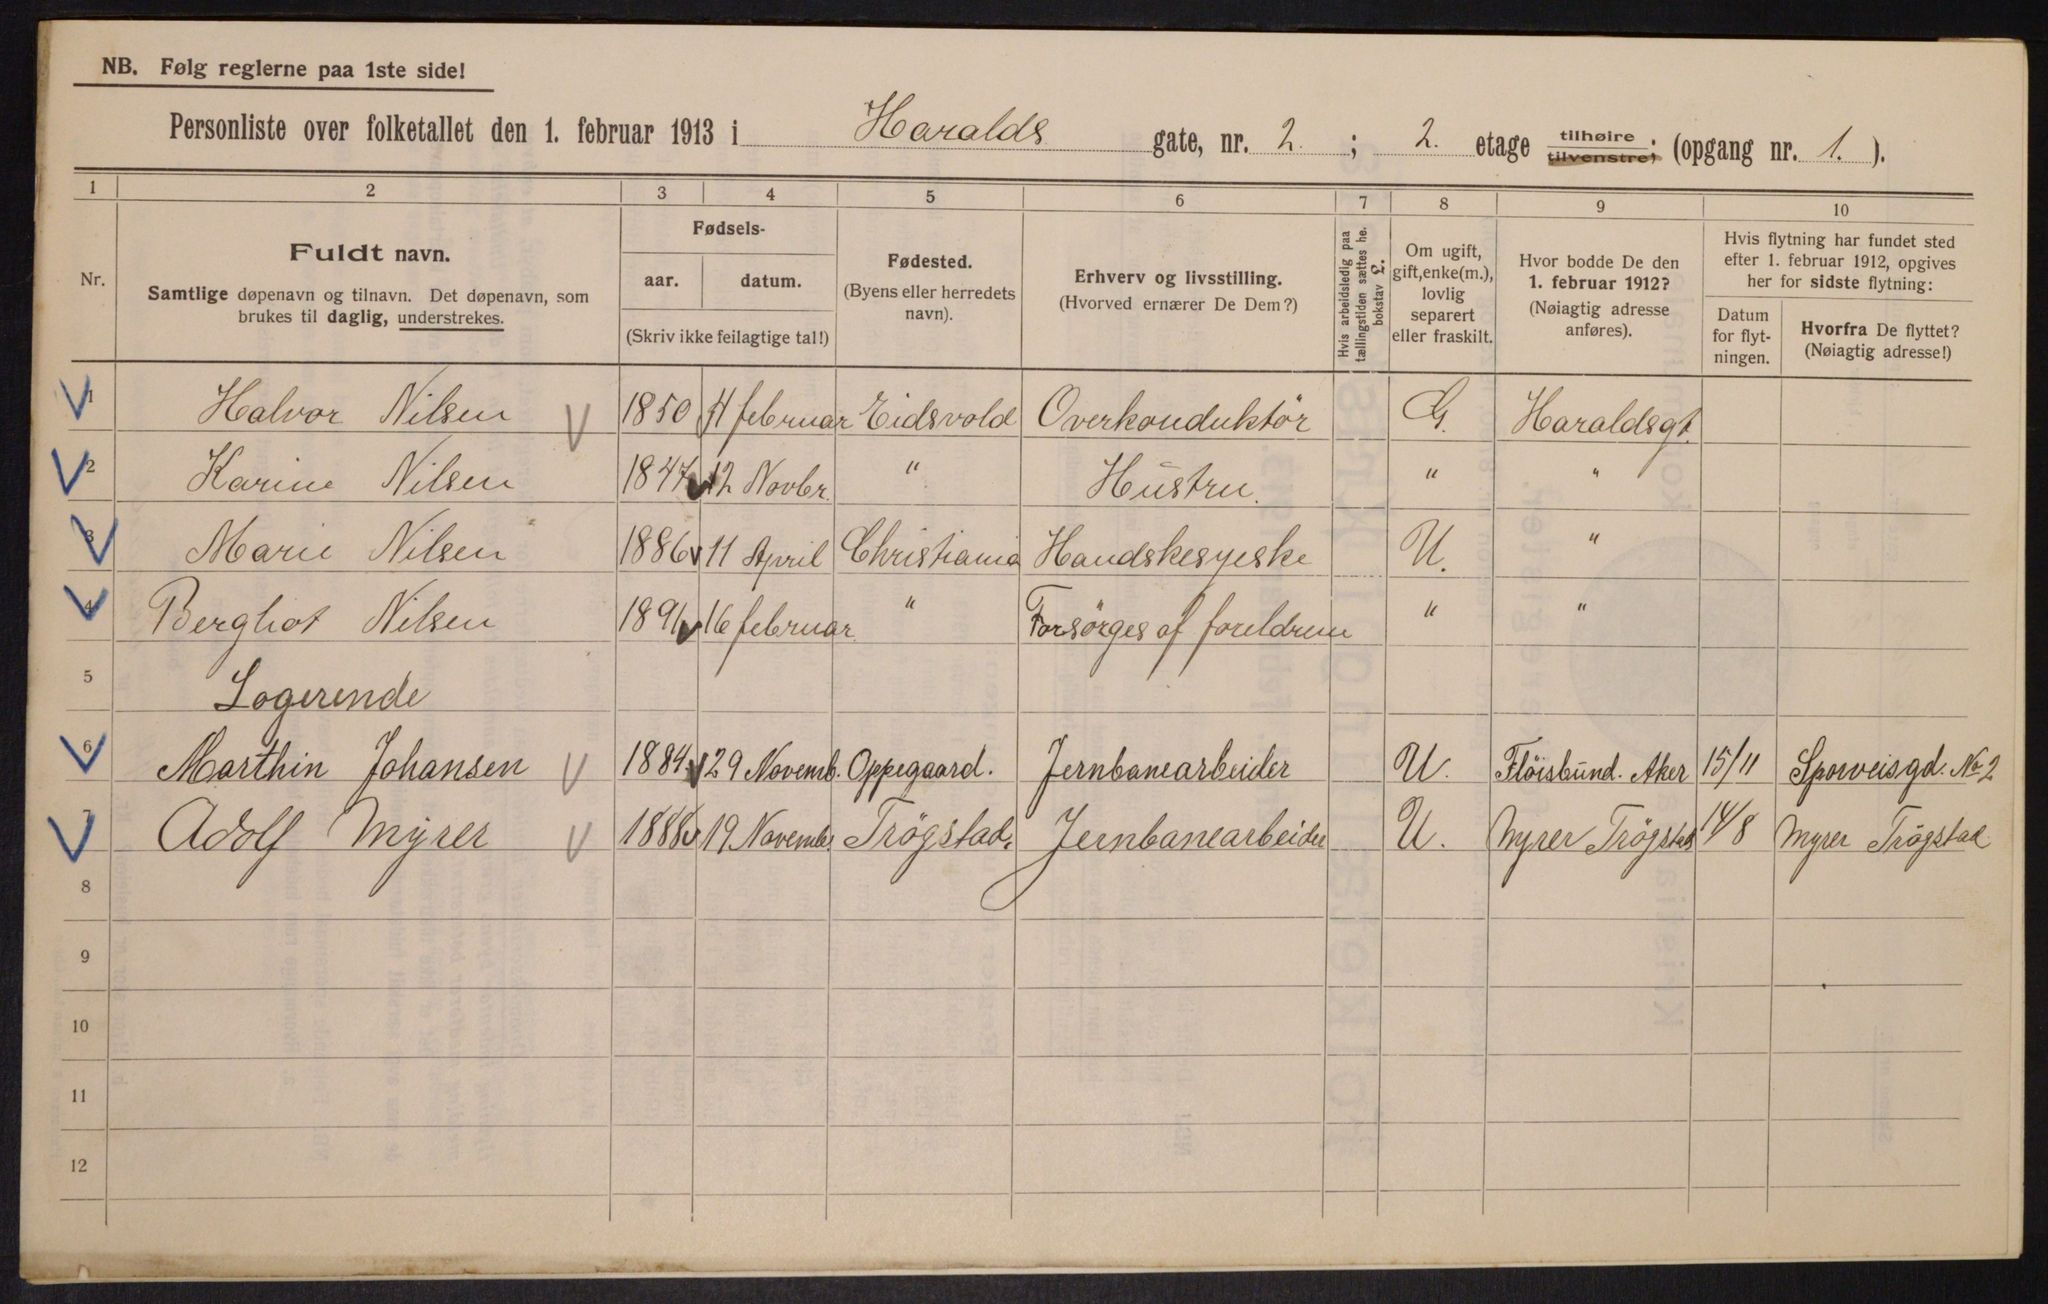 NB. Følg reglerne paa 1ste side!
Personliste over folketallet den 1. februar 1913 i Haralds gate, nr. 2 ; 2. etage tilhøire tilvenstre; (opgang nr. 1. ).
1 2 3 4 5 6 7 8 9 10
Nr.
Fuldt navn.
Samtlige døpenavn og tilnavn. Det døpenavn, som
brukes til daglig, understrekes.
Fødsels-
aar. datum.
(Skriv ikke feilagtige tal!)
Fødested.
(Byens eller herredets
navn).
Erhverv og livsstilling.
(Hvorved ernærer De Dem?)
Hvis arbeidsledig paa
tællingstiden sættes he.
bokstav L.
Om ugift,
gift, enke(m.),
lovlig
separert
eller fraskilt.
Hvor bodde De den
1. februar 1912?
(Nøiagtig adresse
anføres).
Hvis flytning har fundet sted
efter 1. februar 1912, opgives
her for sidste flytning:
Datum
for flyt-
ningen.
Hvorfra De flyttet?
(Nøiagtig adresse!)
1 Halvor Nilsen 1850 11 februar Eidsvold Overkonduktör G. Haraldsgt.
2 Karine Nilsen 1847 12 Novbr. " Hustru. " "
3 Marie Nilsen 1886 11 April Christiania Handskesyeske U. "
4 Bergliot Nilsen 1891 16 februar " Forsörges af foreldrene " "
5 Logerende
6 Marthin Johansen 1884 29 Novemb. Oppegaard. Jernbanearbeider U. Flöisbund. Aker 15/11 Sporveisgd. No 2
7 Adolf Myrer 1886 19 Novembr. Trögstad. Jernbanearbeider U. Myrer Trögstad 14/8 Myrer Trögstad
8
9
10
11
12